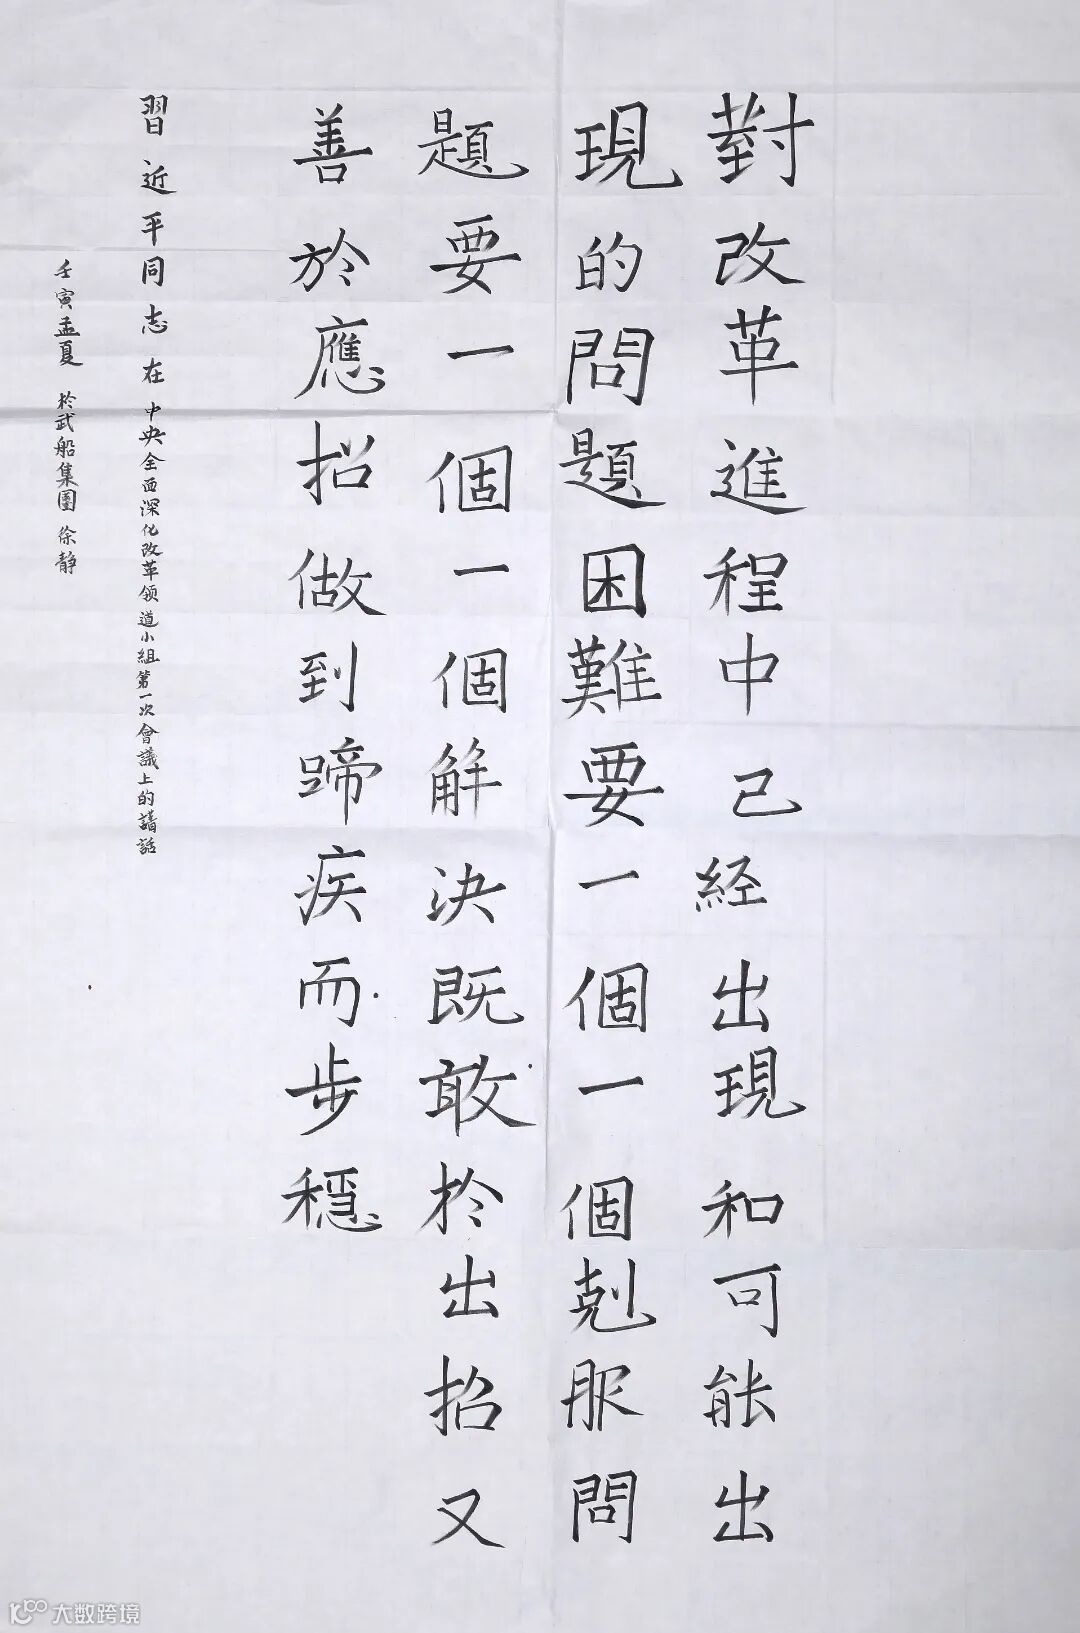 對改革進程中已经出現和可能出
現的問題困難要一個一個剋服問
題要一個一個解決既敢於出招又
善於應招做到蹄疾而步穩
習近平同志在中央全面深化改革领道小組第一次會議上的講話
壬寅孟夏 於武船集團 徐静
大数跨境